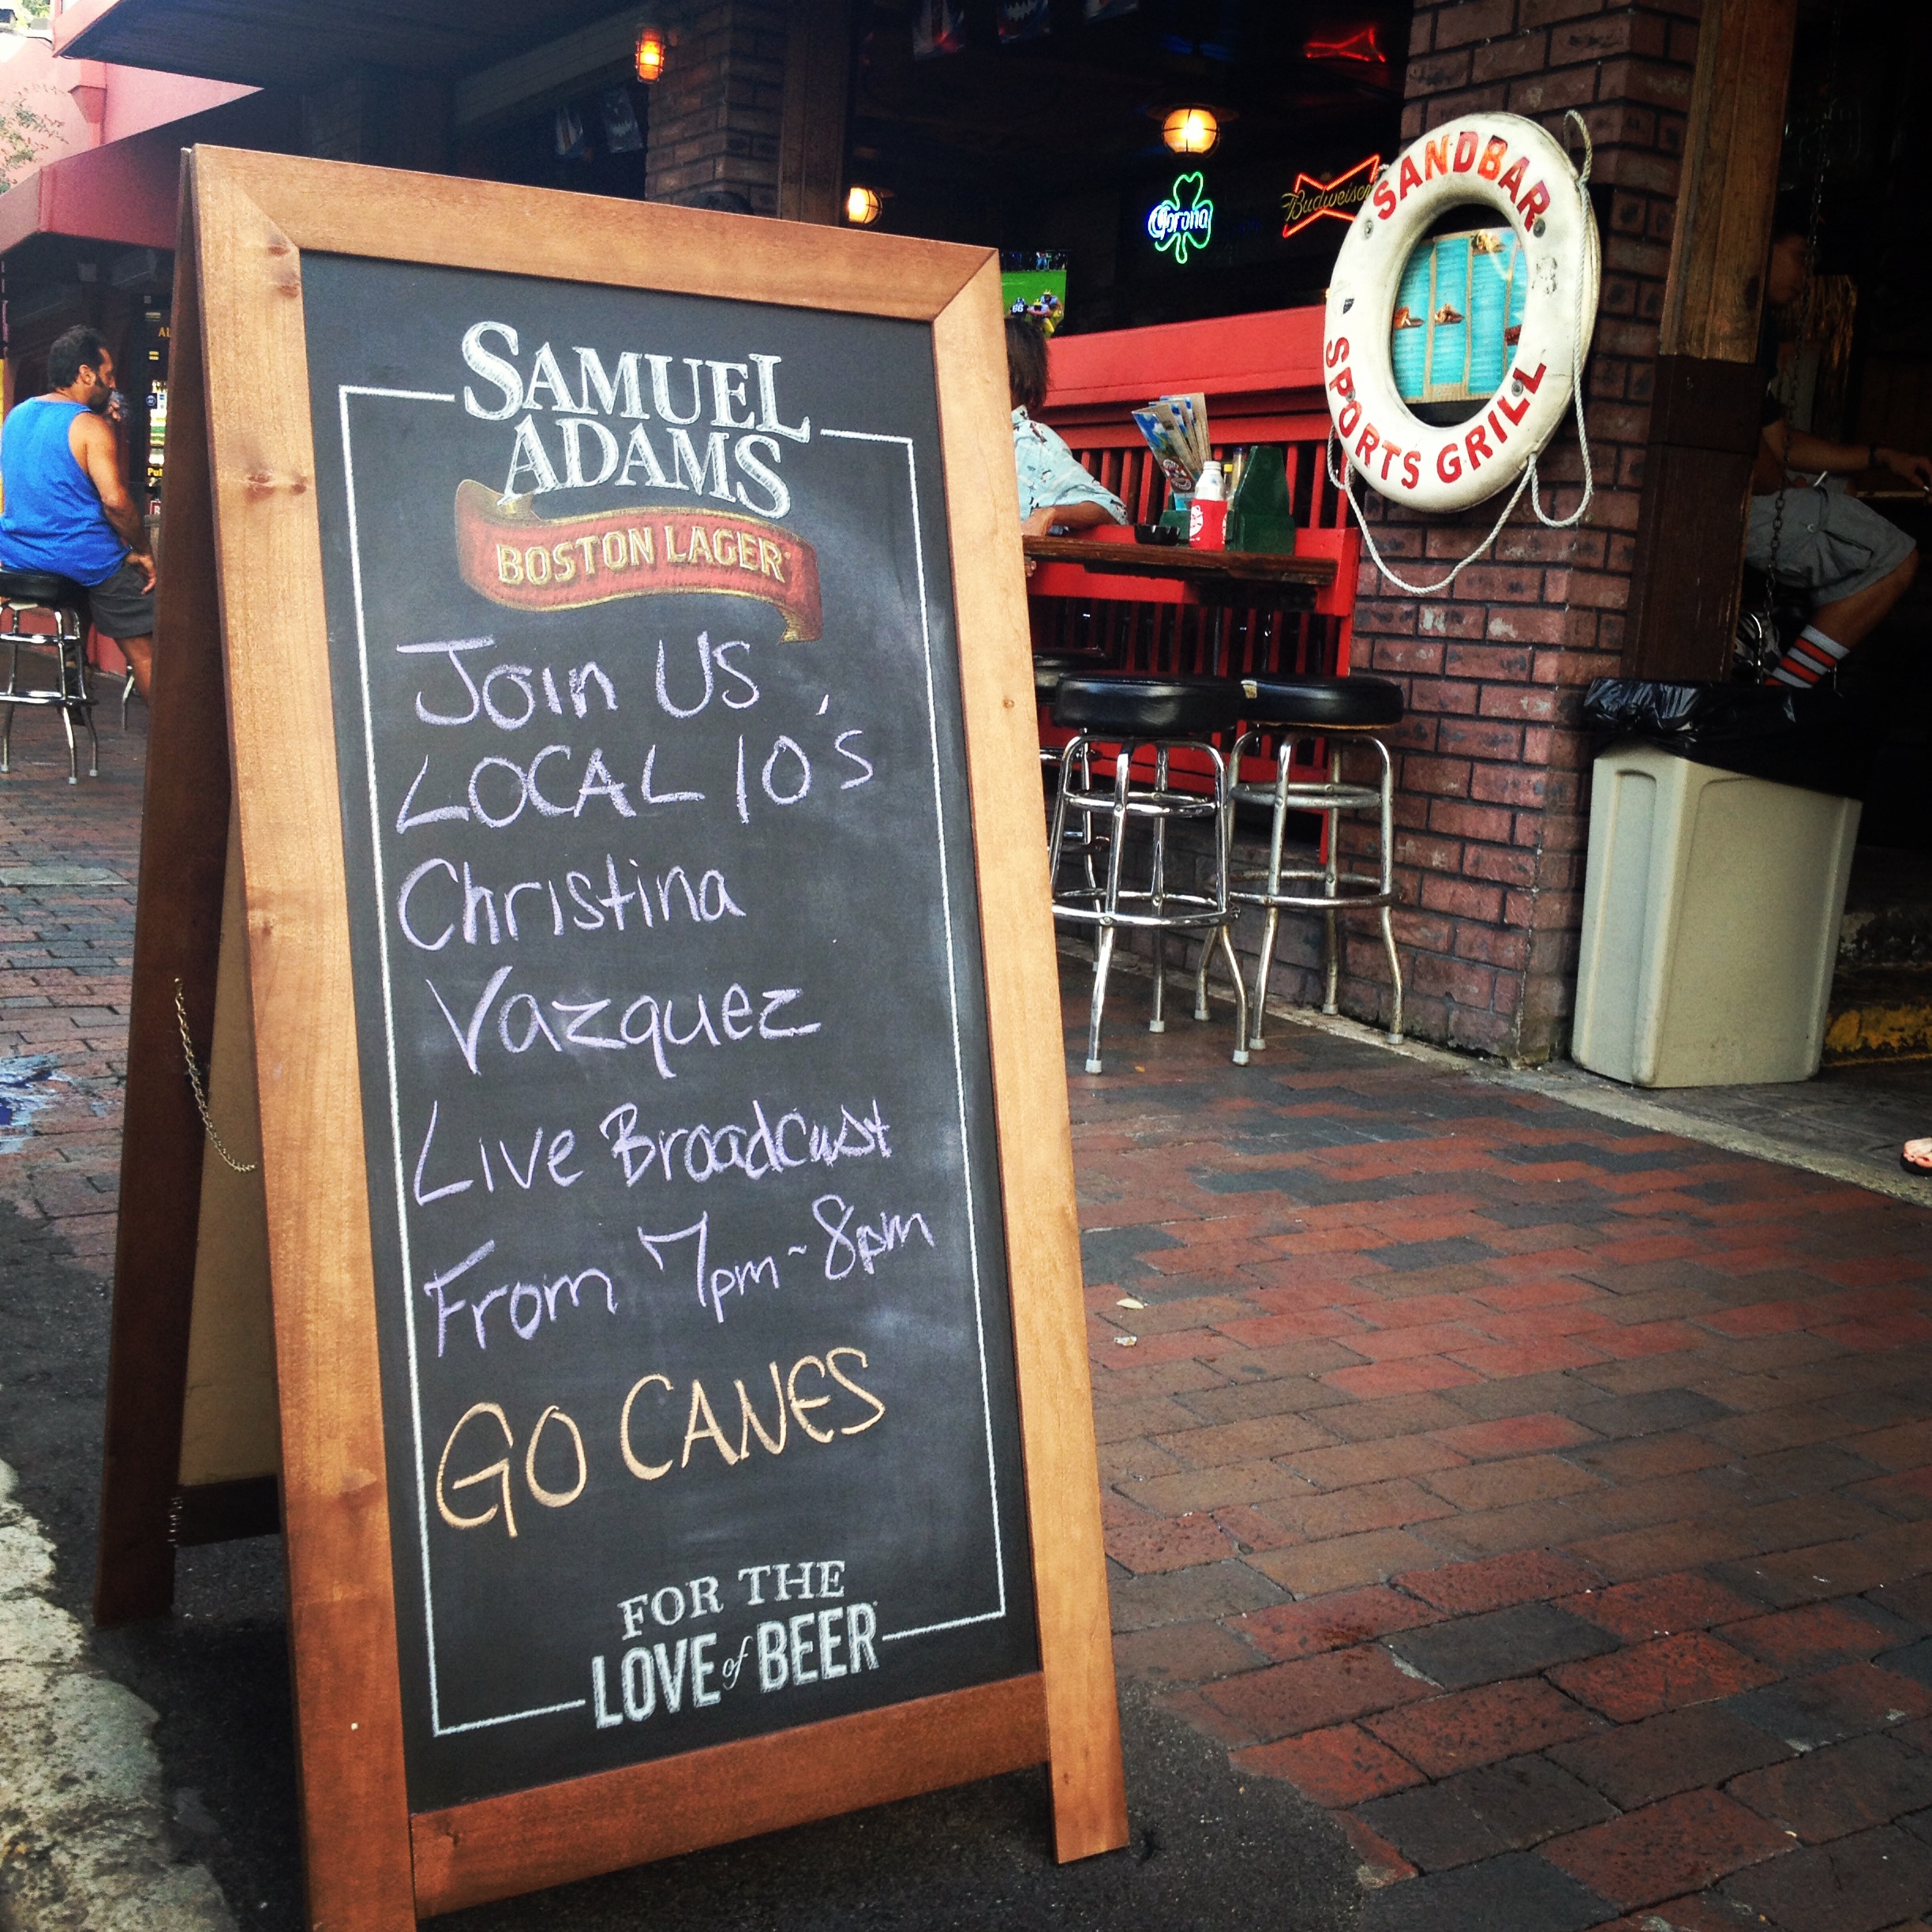 SAMUEL
ADAMS
BOSTON LAGER
Join US
LOCAL 10's
Christina
Vazquez
Live Broadcast
From 7pm-8pm
GO CANES
FOR THE
LOVE of BEER
Corona
Budweiser
SANDBAR
SPORTS GRILL